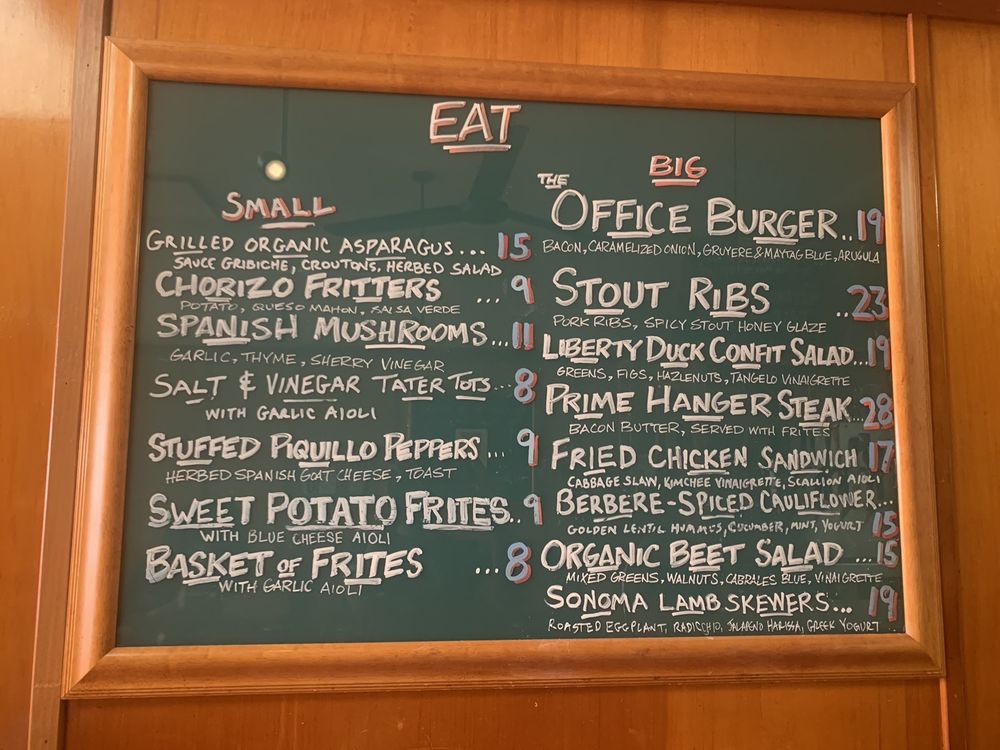 EAT
SMALL
GRILLED ORGANIC ASPARAGUS... 15
SAUCE GRIBICHE, CROUTONS, HERBED SALAD
CHORIZO FRITTERS ... 9
POTATO, QUESO MAHON, SALSA VERDE
SPANISH MUSHROOMS... 11
GARLIC, THYME, SHERRY VINEGAR
SALT & VINEGAR TATER TOTS... 8
WITH GARLIC AIOLI
STUFFED PIQUILLO PEPPERS... 9
HERBED SPANISH GOAT CHEESE, TOAST
SWEET POTATO FRITES.. 9
WITH BLUE CHEESE AIOLI
BASKET OF FRITES ... 8
WITH GARLIC AIOLI
BIG
THE OFFICE BURGER.. 19
BACON, CARAMELIZED ONION, GRUYERE & MAYTAG BLUE, ARUGULA
STOUT RIBS ..23
PORK RIBS, SPICY STOUT HONEY GLAZE
LIBERTY DUCK CONFIT SALAD...19
GREENS, FIGS, HAZLENUTS, TANGELO VINAIGRETTE
PRIME HANGER STEAK...28
BACON BUTTER, SERVED WITH FRITES
FRIED CHICKEN SANDWICH 17
CABBAGE SLAW, KIMCHEE VINAIGRETTE, SCALLION AIOLI
BERBERE-SPICED CAULIFLOWER... 15
GOLDEN LENTIL HUMMUS, CUCUMBER, MINT, YOGURT
ORGANIC BEET SALAD ...15
MIXED GREENS, WALNUTS, CABRALES BLUE, VINAIGRETTE
SONOMA LAMB SKEWERS... 19
ROASTED EGGPLANT, RADICCHIO, JALAPENO HARISSA, GREEK YOGURT